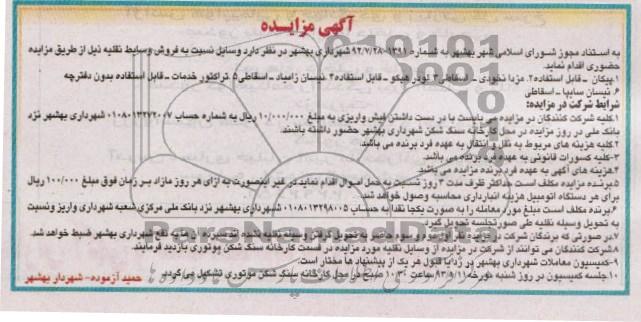 آگهی مزایده
به استناد مجوز شورای اسلامی شهر بهشهر به شماره ۱۳۹۱-۹۲/۷/۲۸ شهرداری بهشهر در نظر دارد وسایل نسبت به فروش وسایط نقلیه ذیل از طریق مزایده
حضوری اقدام نماید.
۱.پیکان - قابل استفاده ۲. مزدا نخودی - اسقاطی ۳. لودر هپکو - قابل استفاده ۴. نیسان زامیاد - اسقاطی ۵. تراکتور خدمات - قابل استفاده بدون دفترچه
۶. نیسان سایپا - اسقاطی
شرایط شرکت در مزایده:
۱.کلیه شرکت کنندگان در مزایده می بایست با در دست داشتن فیش واریزی به مبلغ ۱۰/۰۰۰/۰۰۰ ریال به شماره حساب ۰۱۰۸۰۱۳۲۷۲۰۰۷ شهرداری بهشهر نزد
بانک ملی در روز مزایده در محل کارخانه سنگ شکن شهرداری بهشهر حضور داشته باشند.
۲.کلیه هزینه های مربوط به نقل و انتقال به عهده فرد برنده می باشد.
۳-کلیه کسورات قانونی به عهده فرد برنده می باشد.
۴.هزینه های آگهی به عهده فرد برنده مزایده می باشد.
۵.برنده مزایده مکلف است حداکثر ظرف مدت ۳ روز نسبت به حمل اموال اقدام نماید در غیر اینصورت به ازای هر روز مازاد بر زمان فوق مبلغ ۱۰۰/۰۰۰ ریال
برای هر دستگاه اتومبیل هزینه انبارداری محاسبه وصول خواهد شد.
۶.برنده مکلف است مبلغ مورد معامله را به صورت یکجا نقدا به حساب ۰۱۰۸۰۱۳۲۹۸۰۰۵ شهرداری بهشهر نزد بانک ملی مرکزی شعبه شهرداری واریز ونسبت
به تحویل وسیله نقلیه طی صورتجلسه تحویل گیرد.
۷.در صورتی که برندگان شرکت در مزایده حاضر به تحویل گرفتن وسیله نقلیه نشدند به نفع شهرداری بهشهر ضبط خواهد شد.
۸.شرکت کنندگان می توانند از شرکت در مزایده از وسایل نقلیه مورد مزایده در قسمت کارخانه سنگ شکن موتوری بازدید فرمایند.
۹-کمیسیون معاملات شهرداری بهشهر در رد یا قبول هر یک از پیشنهاد ها مختار است.
۱۰.جلسه کمیسیون در روز شنبه مورخه ۹۳/۵/۱۱ ساعت ۱۰:۳۰ صبح در محل کارخانه سنگ شکن موتوری تشکیل می گردد.
حمید آزموده - شهردار بهشهر
ParsNamadData